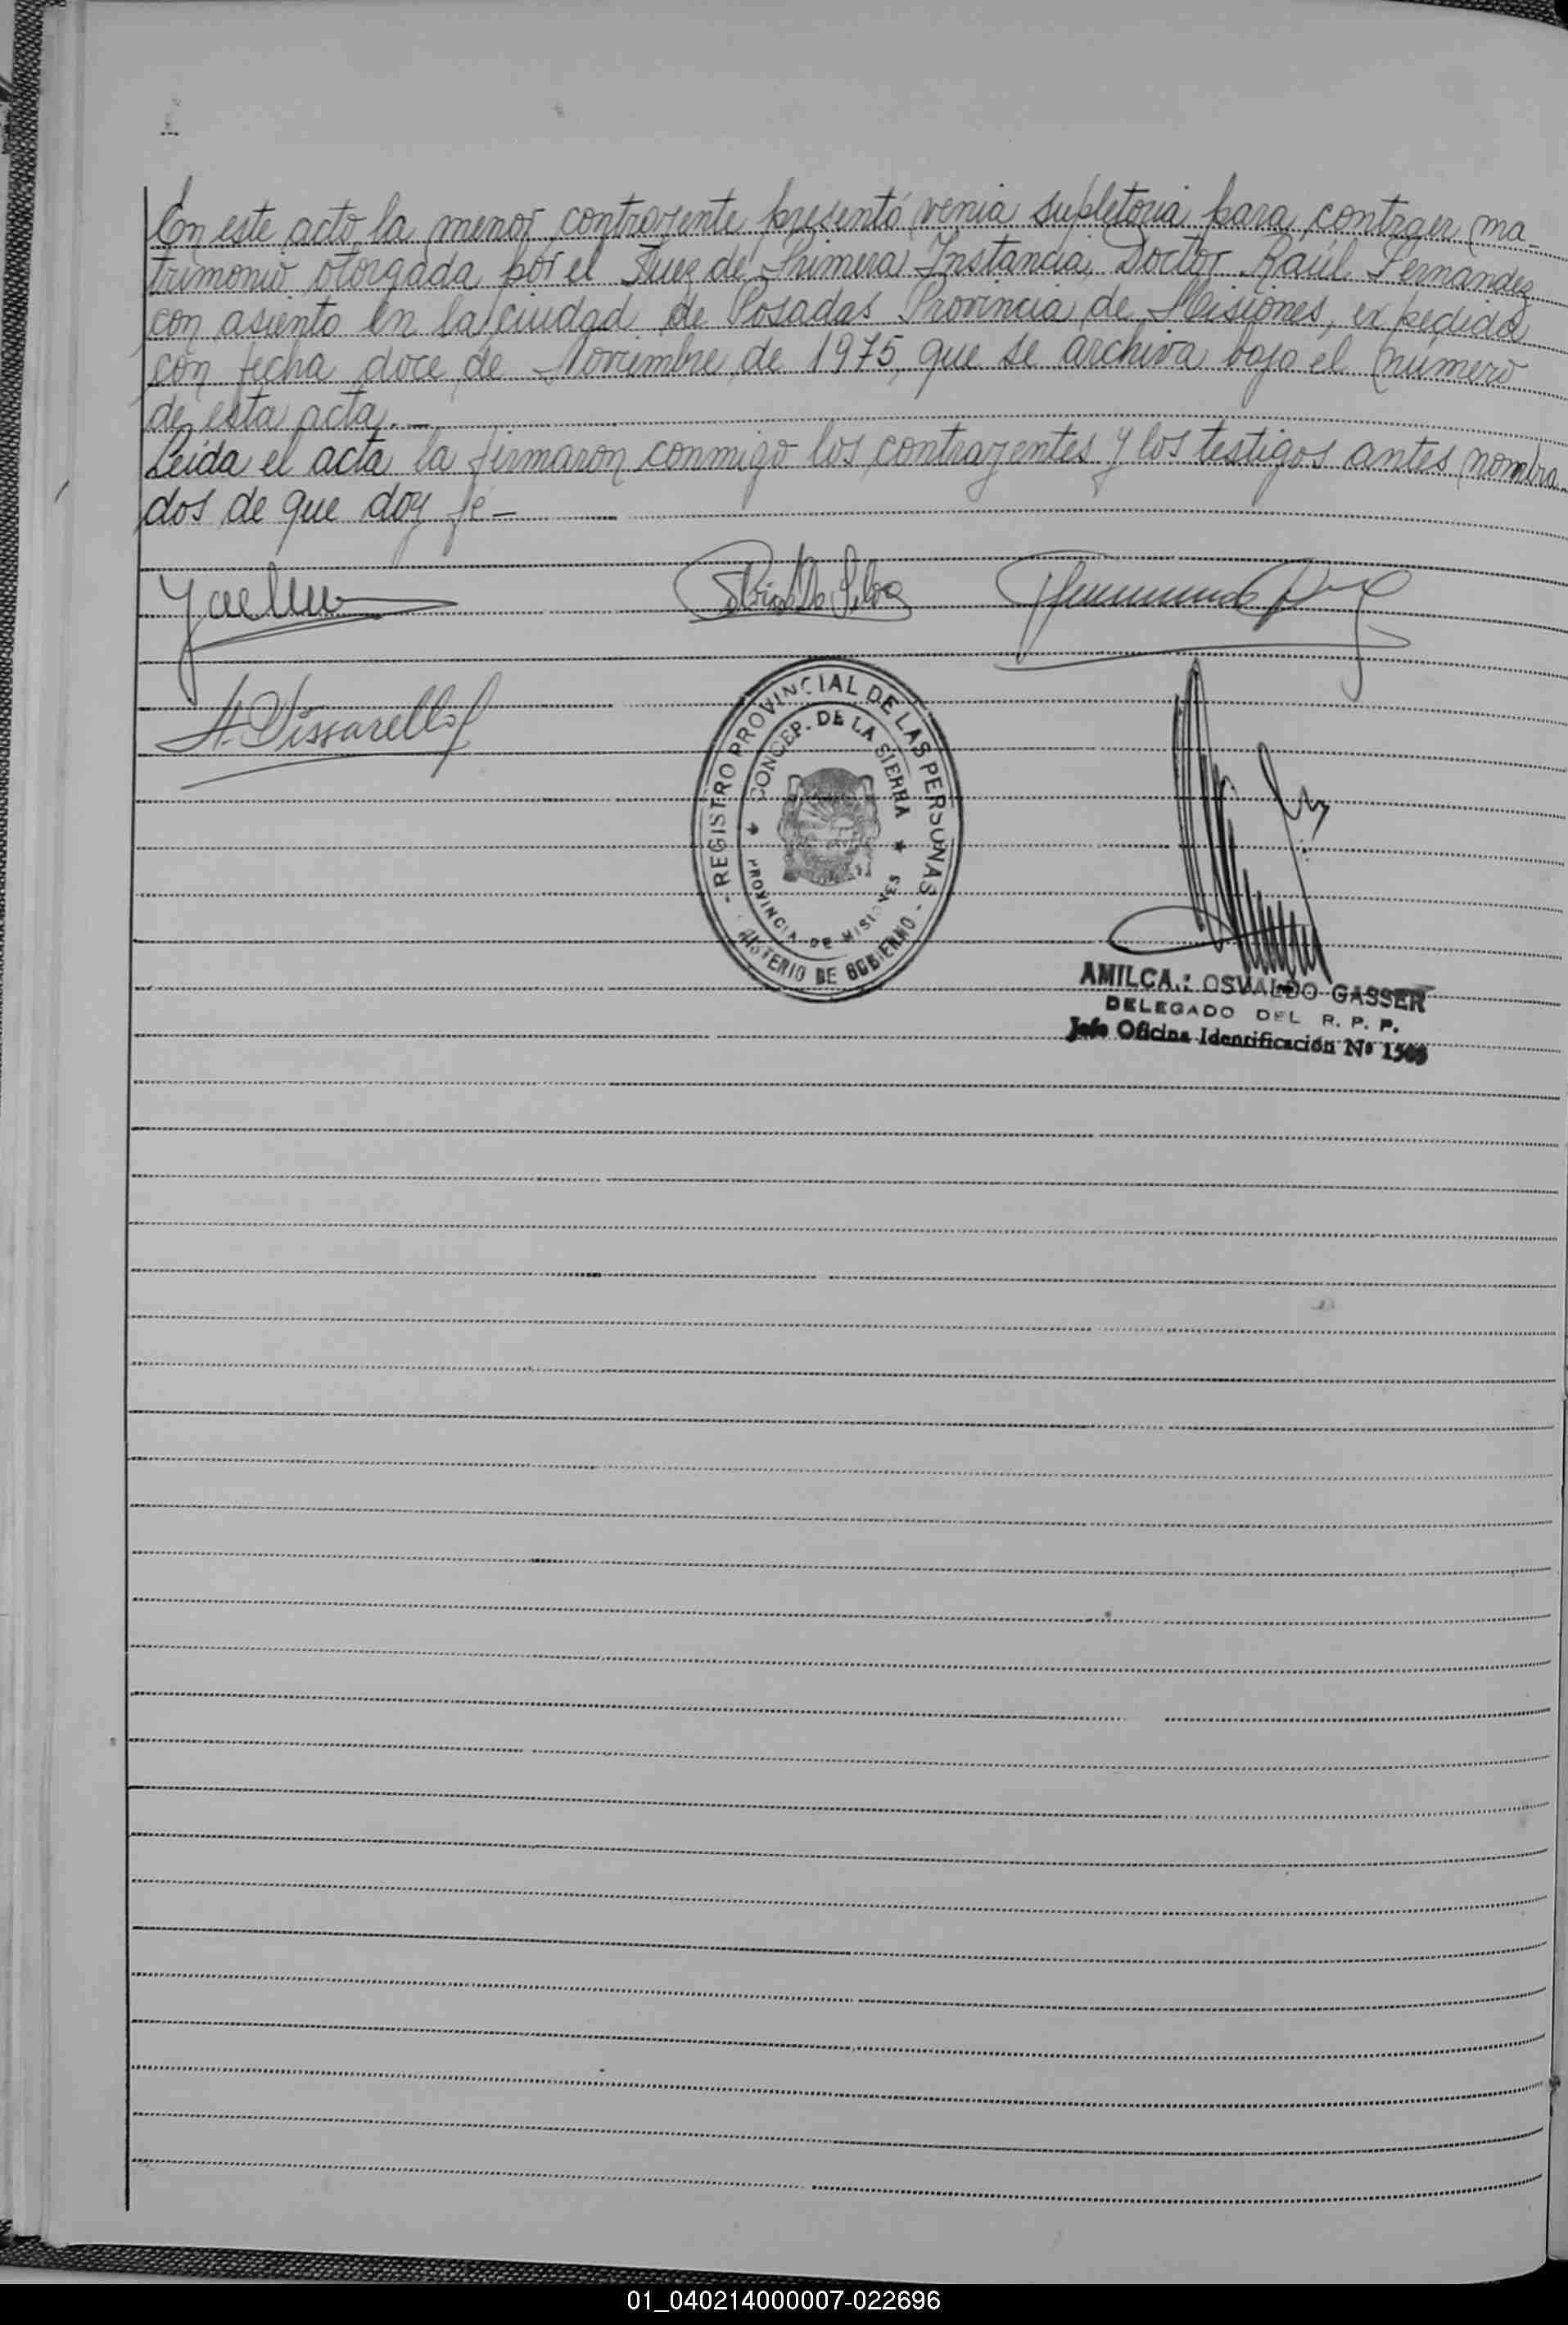 En este acto la menor contrayente presentó venia supletoria para contraer ma-
trimonio otorgada por el Juez de Primera Instancia, Doctor Raúl Fernandez
con asiento en la ciudad de Posadas Provincia de Misiones, expedida
con fecha doce de Noviembre de 1975, que se archiva bajo el número
de esta acta.-
Leída el acta la firmaron conmigo los contrayentes y los testigos antes nombra-
dos de que doy fé-
Silva
A. Vissarello
- REGISTRO PROVINCIAL DE LAS PERSONAS -
CONCEP. DE LA SIERRA
PROVINCIA DE MISIONES
MINISTERIO DE GOBIERNO
AMILCA.: OSVALDO GASSER
DELEGADO DEL R. P. P.
Jefe Oficina Identificación Nº
01_040214000007-022696